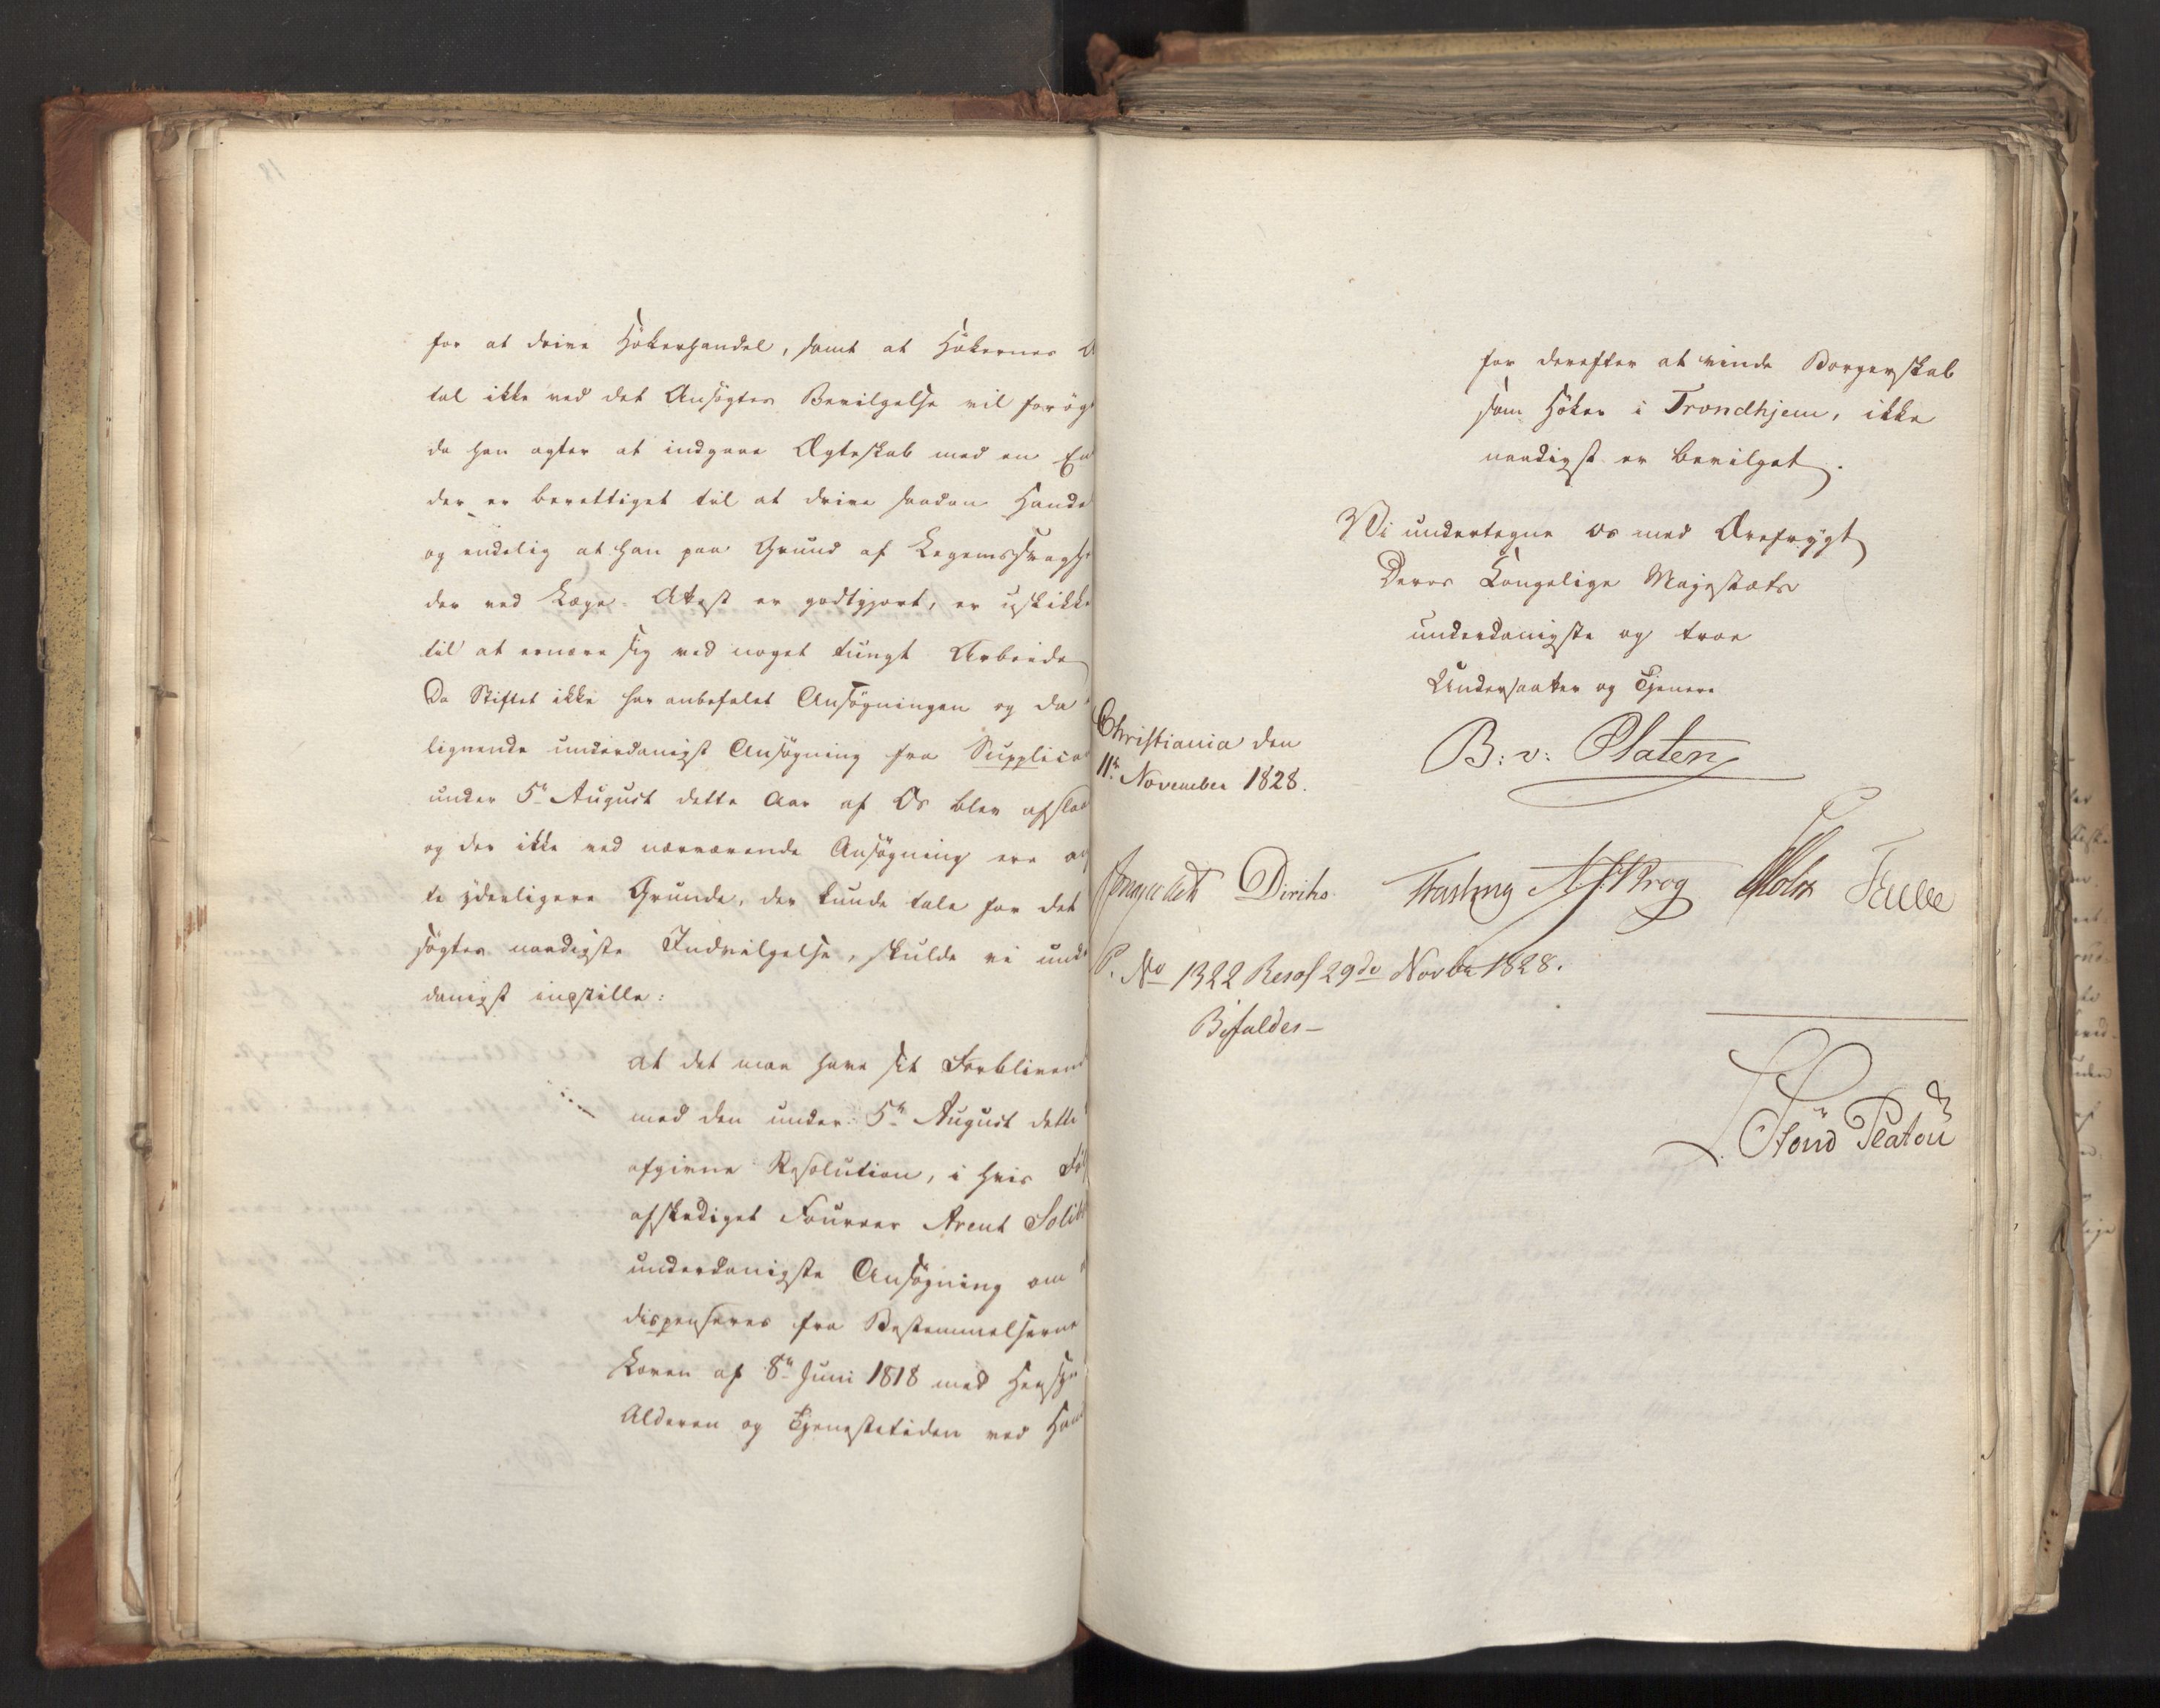 for at drive Høkerhandel, samt at Høkernes
tal ikke ved det Ansøgtes Bevilgelse vil forøg
da han agter at indgaae Ægteskab med en
der er berettiget til at drive saadan Hande
og endelig at han paa Grund af Legemssvaghe
der ved Læge-Attest er godtgjort, er uskikke
til at ernære sig ved noget tungt Arbeide
Da Stiftet ikke har anbefalet Ansøgningen og da
lignende underdanigst Ansøgning fra Supplica
under 5te August dette Aar af Os blev afslaa
og der ikke ved nærværende Ansøgning ere
te yderligere Grunde, der kunde tale for det
søgtes naadigste Indvilgelse, skulde vi unde
danigst indstille:
at det maa have sit Forblivend
med den under 5te August dette
afgivne Resolution, i hvis Føl
afskediget Fourer Arent Solib
underdanigste Ansøgning om
dispenseres fra Bestemmelserne
Loven af 8de Juni 1818 med Hensyn
Alderen og Tjenestetiden ved Han
for derefter at vinde Borgerskab
som Høker i Trondhjem, ikke
naadigst er bevilget.
Vi undertegne os med Ærefrygt
Deres Kongelige Majestæts
underdanigste og troe
Undersaatter og Tjenere
Christiania den
11te November 1828.
B: v: Platen
Diriks Fasting Krog Holst
P. No 1322 Resol 29de Novbr 1828.
Bifaldes
Platou